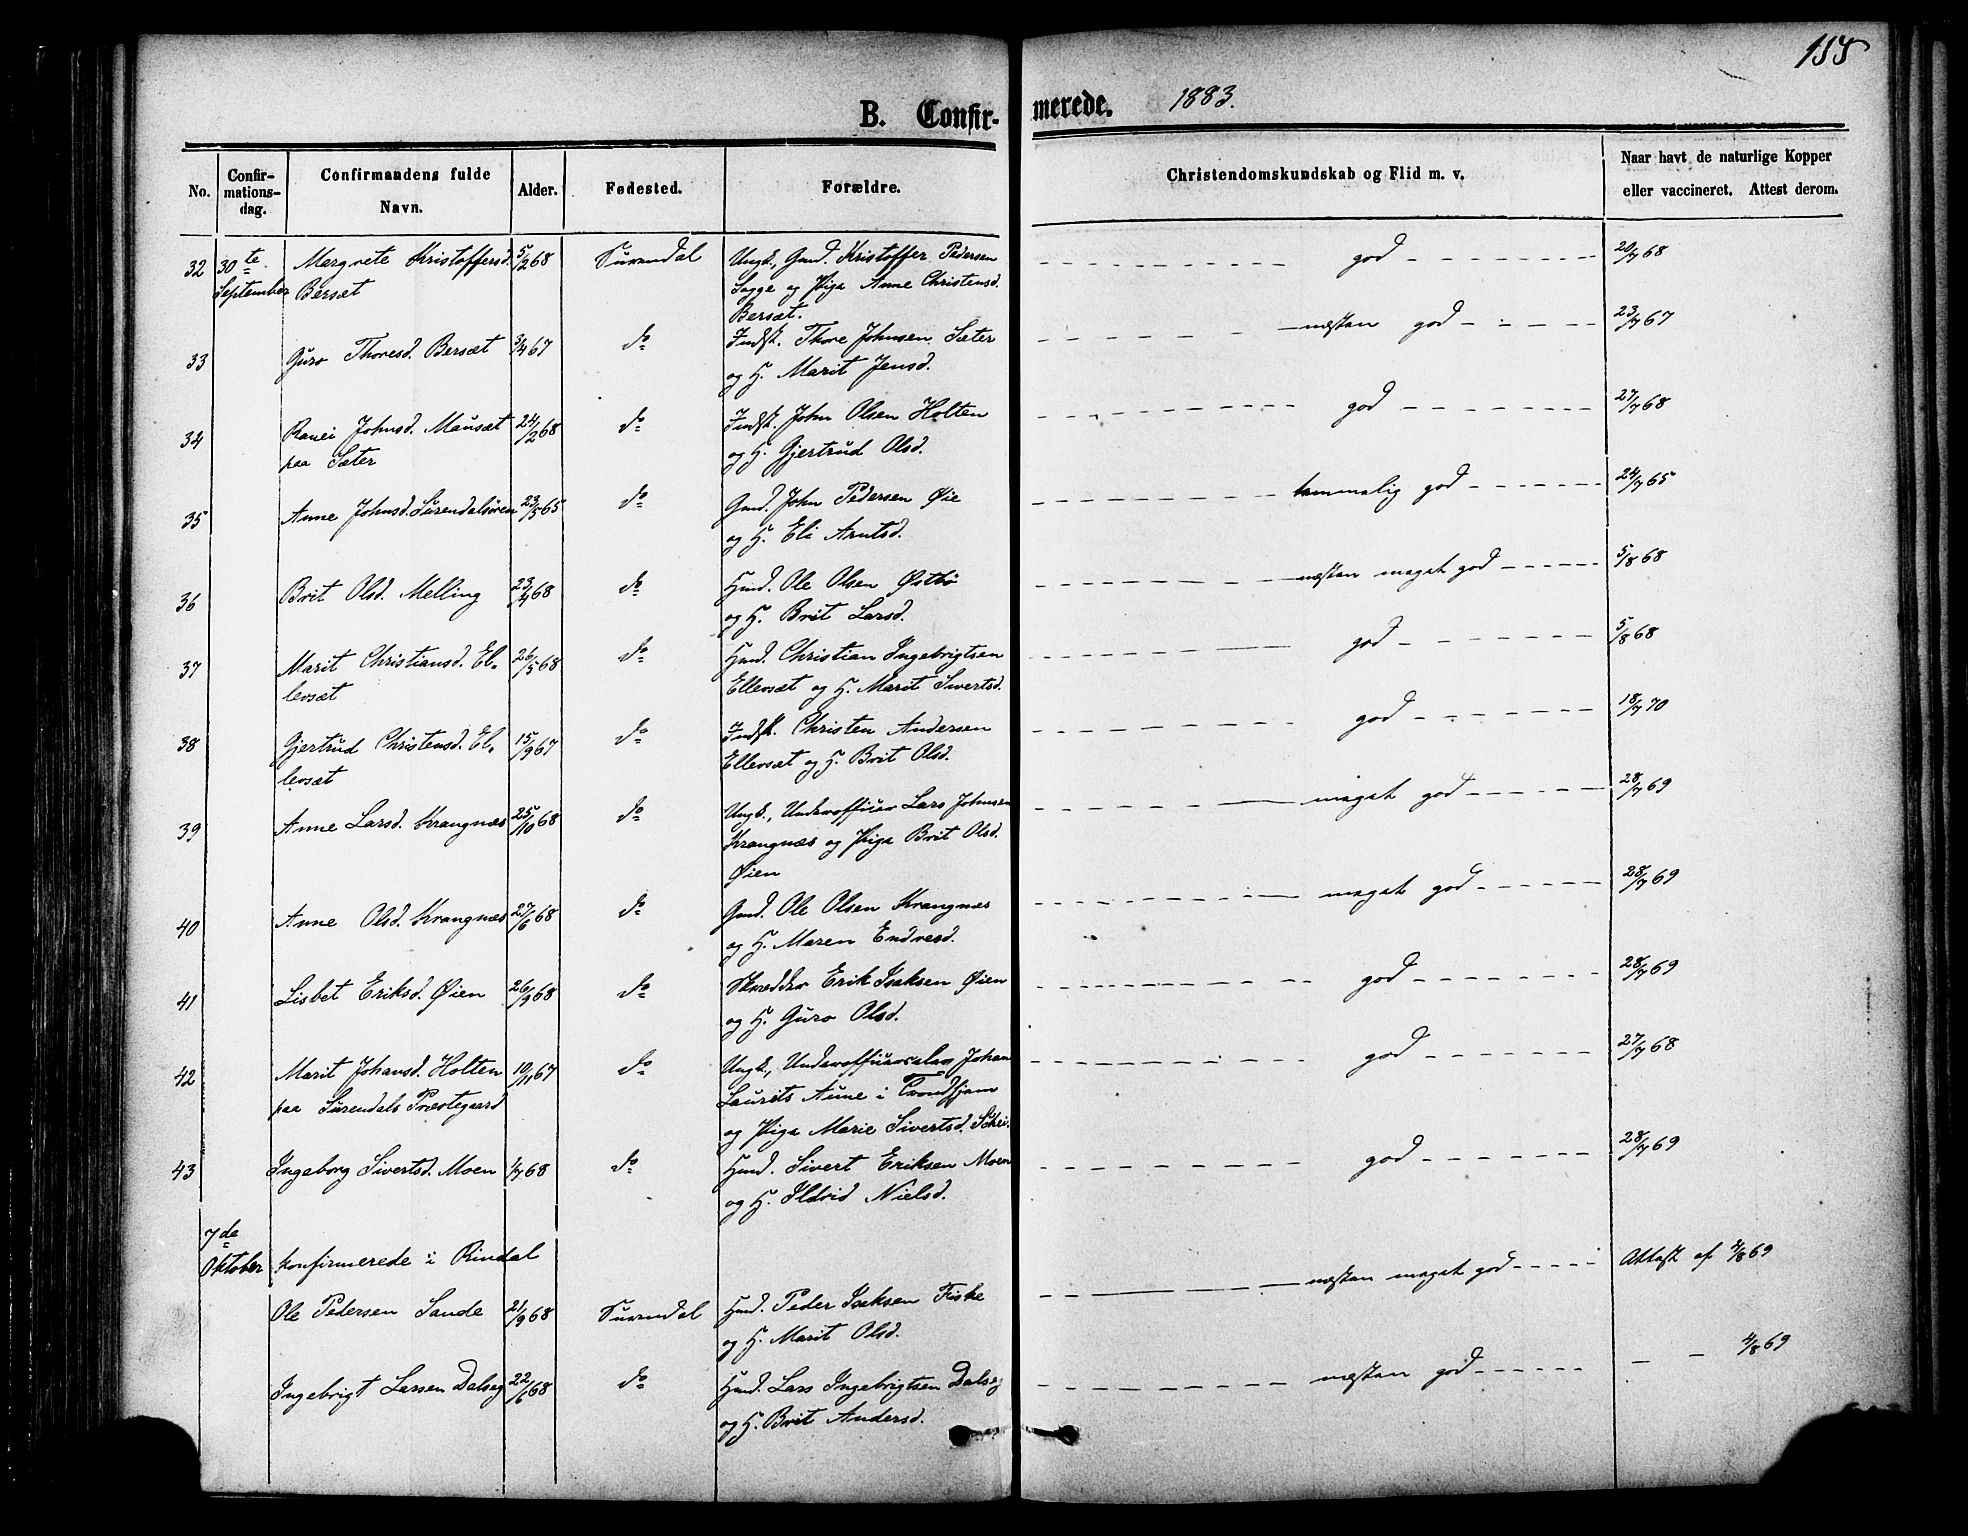 155
B. Confir- merede. 1883.
No. Confir-mations-dag. Confirmandens fulde Navn. Alder. Fødested. Forældre. Christendomskundskab og Flid m. v. Naar havt de naturlige Kopper eller vaccineret. Attest derom.
32 30te Margrete Kristoffersd. 5/2 68 Surendal Ungk., Gmd. Kristoffer Pedersen god 20/7 68
September Bersæt Sogge og Pige Anne Christensd.
Bersæt.
33 Guro Thoresd. Bersæt 3/4 67 do Indst. Thore Johnsen Sæter næsten god 23/7 67
og H. Marit Jensd.
34 Ranei Johnsd. Mausæt 24/2 68 do Indst. John Olsen Holten god 27/7 68
paa Sæter og H. Gjertrud Olsd.
35 Anne Johnsd. Surendalsøren 23/5 65 do Gmd. John Pedersen Øie temmelig god 24/7 65
og H. Eli Arntsd.
36 Brit Olsd. Melling 23/4 68 do Hmd. Ole Olsen Østbø næsten meget god 5/8 68
og H. Brit Larsd.
37 Marit Christiansd. El- 26/5 68 do Hmd. Christian Ingebrigtsen god 5/8 68
levsæt Ellevsæt og H. Marit Sivertsd.
38 Gjertrud Christensd. El- 15/9 67 do Indst. Christen Andersen god 18/7 70
levsæt Ellevsæt og H. Brit Olsd.
39 Anne Larsd. Krangnæs 25/10 68 do Ungk., Underofficer Lars Johnsen meget god 28/7 69
Krangnæs og Pige Brit Olsd.
Øien
40 Anne Olsd. Krangnæs 27/6 68 do Gmd. Ole Olsen Krangnæs meget god 28/7 69
og H. Maren Endresd.
41 Lisbet Eriksd. Øien 26/9 68 do Skrædder Erik Isaksen Øien god 28/7 69
og H. Guro Olsd.
42 Marit Johansd. Holten 10/11 67 do Ungk., Underofficerselev Johan god 27/7 68
paa Surendals Præstegaard Laurits Aune i Trondhjem
og Pige Marie Sivertsd. Schei.
43 Ingeborg Sivertsd. Moen 1/7 68 do Hmd. Sivert Eriksen Moen god 28/7 69
og H. Ildrid Nielsd.
7de
Oktober konfirmerede i Rindal
Ole Pedersen Sande 21/9 68 Surendal Hmd. Peder Isaksen Fiske næsten meget god Attest af 4/8 69
og H. Marit Olsd.
Ingebrigt Larsen Dalseg 22/6 68 do Hmd. Lars Ingebrigtsen Dalseg næsten god – – 4/8 69
og H. Brit Andersd.